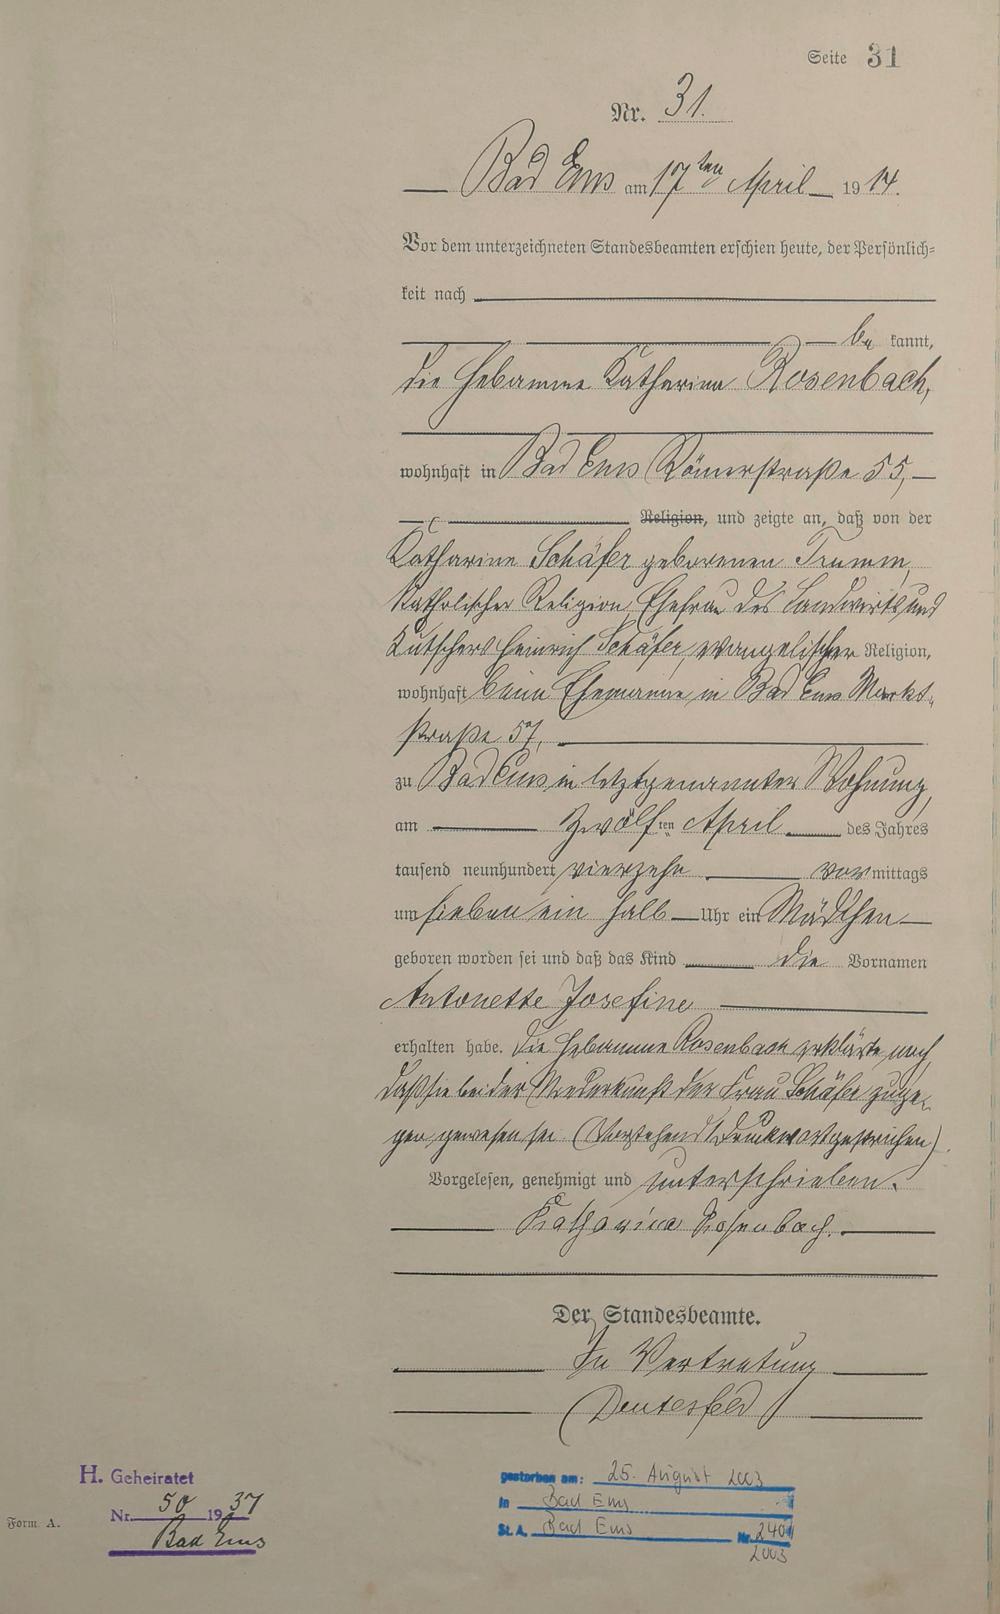 Seite 31
Nr. 31.
Bad Ems am 17ten April 1914.
Vor dem unterzeichneten Standesbeamten erschien heute, der Persönlich-
keit nach
be kannt,
die Hebamme Katharina Rosenbach,
wohnhaft in Bad Ems Römerstraße 55,
Religion, und zeigte an, daß von der
Katharine Schäfer geborenen Trumm,
katholischer Religion, Ehefrau des Landwirts und
Kutschers Heinrich Schäfer, evangelischer Religion,
wohnhaft beim Ehemanne in Bad Ems Markt-
straße 57,
zu Bad Ems in letztgenannter Wohnung,
am zwölften April des Jahres
tausend neunhundert vierzehn vormittags
um sieben ein halb Uhr ein Mädchen
geboren worden sei und daß das Kind die Vornamen
Antonette Josefine
erhalten habe. Die Hebamme Rosenbach erklärte noch,
daß sie bei der Niederkunft der Frau Schäfer zuge-
gen gewesen sei. (Vorstehend 1 Druckwort gestrichen).
Vorgelesen, genehmigt und unterschrieben.
Katharina Rosenbach.
Der Standesbeamte.
In Vertretung
H. Geheiratet
Nr. 50 1937
Bad Ems
Form. A.
gestorben am: 25. August 2003
in Bad Ems
St.A. Bad Ems Nr.
2003